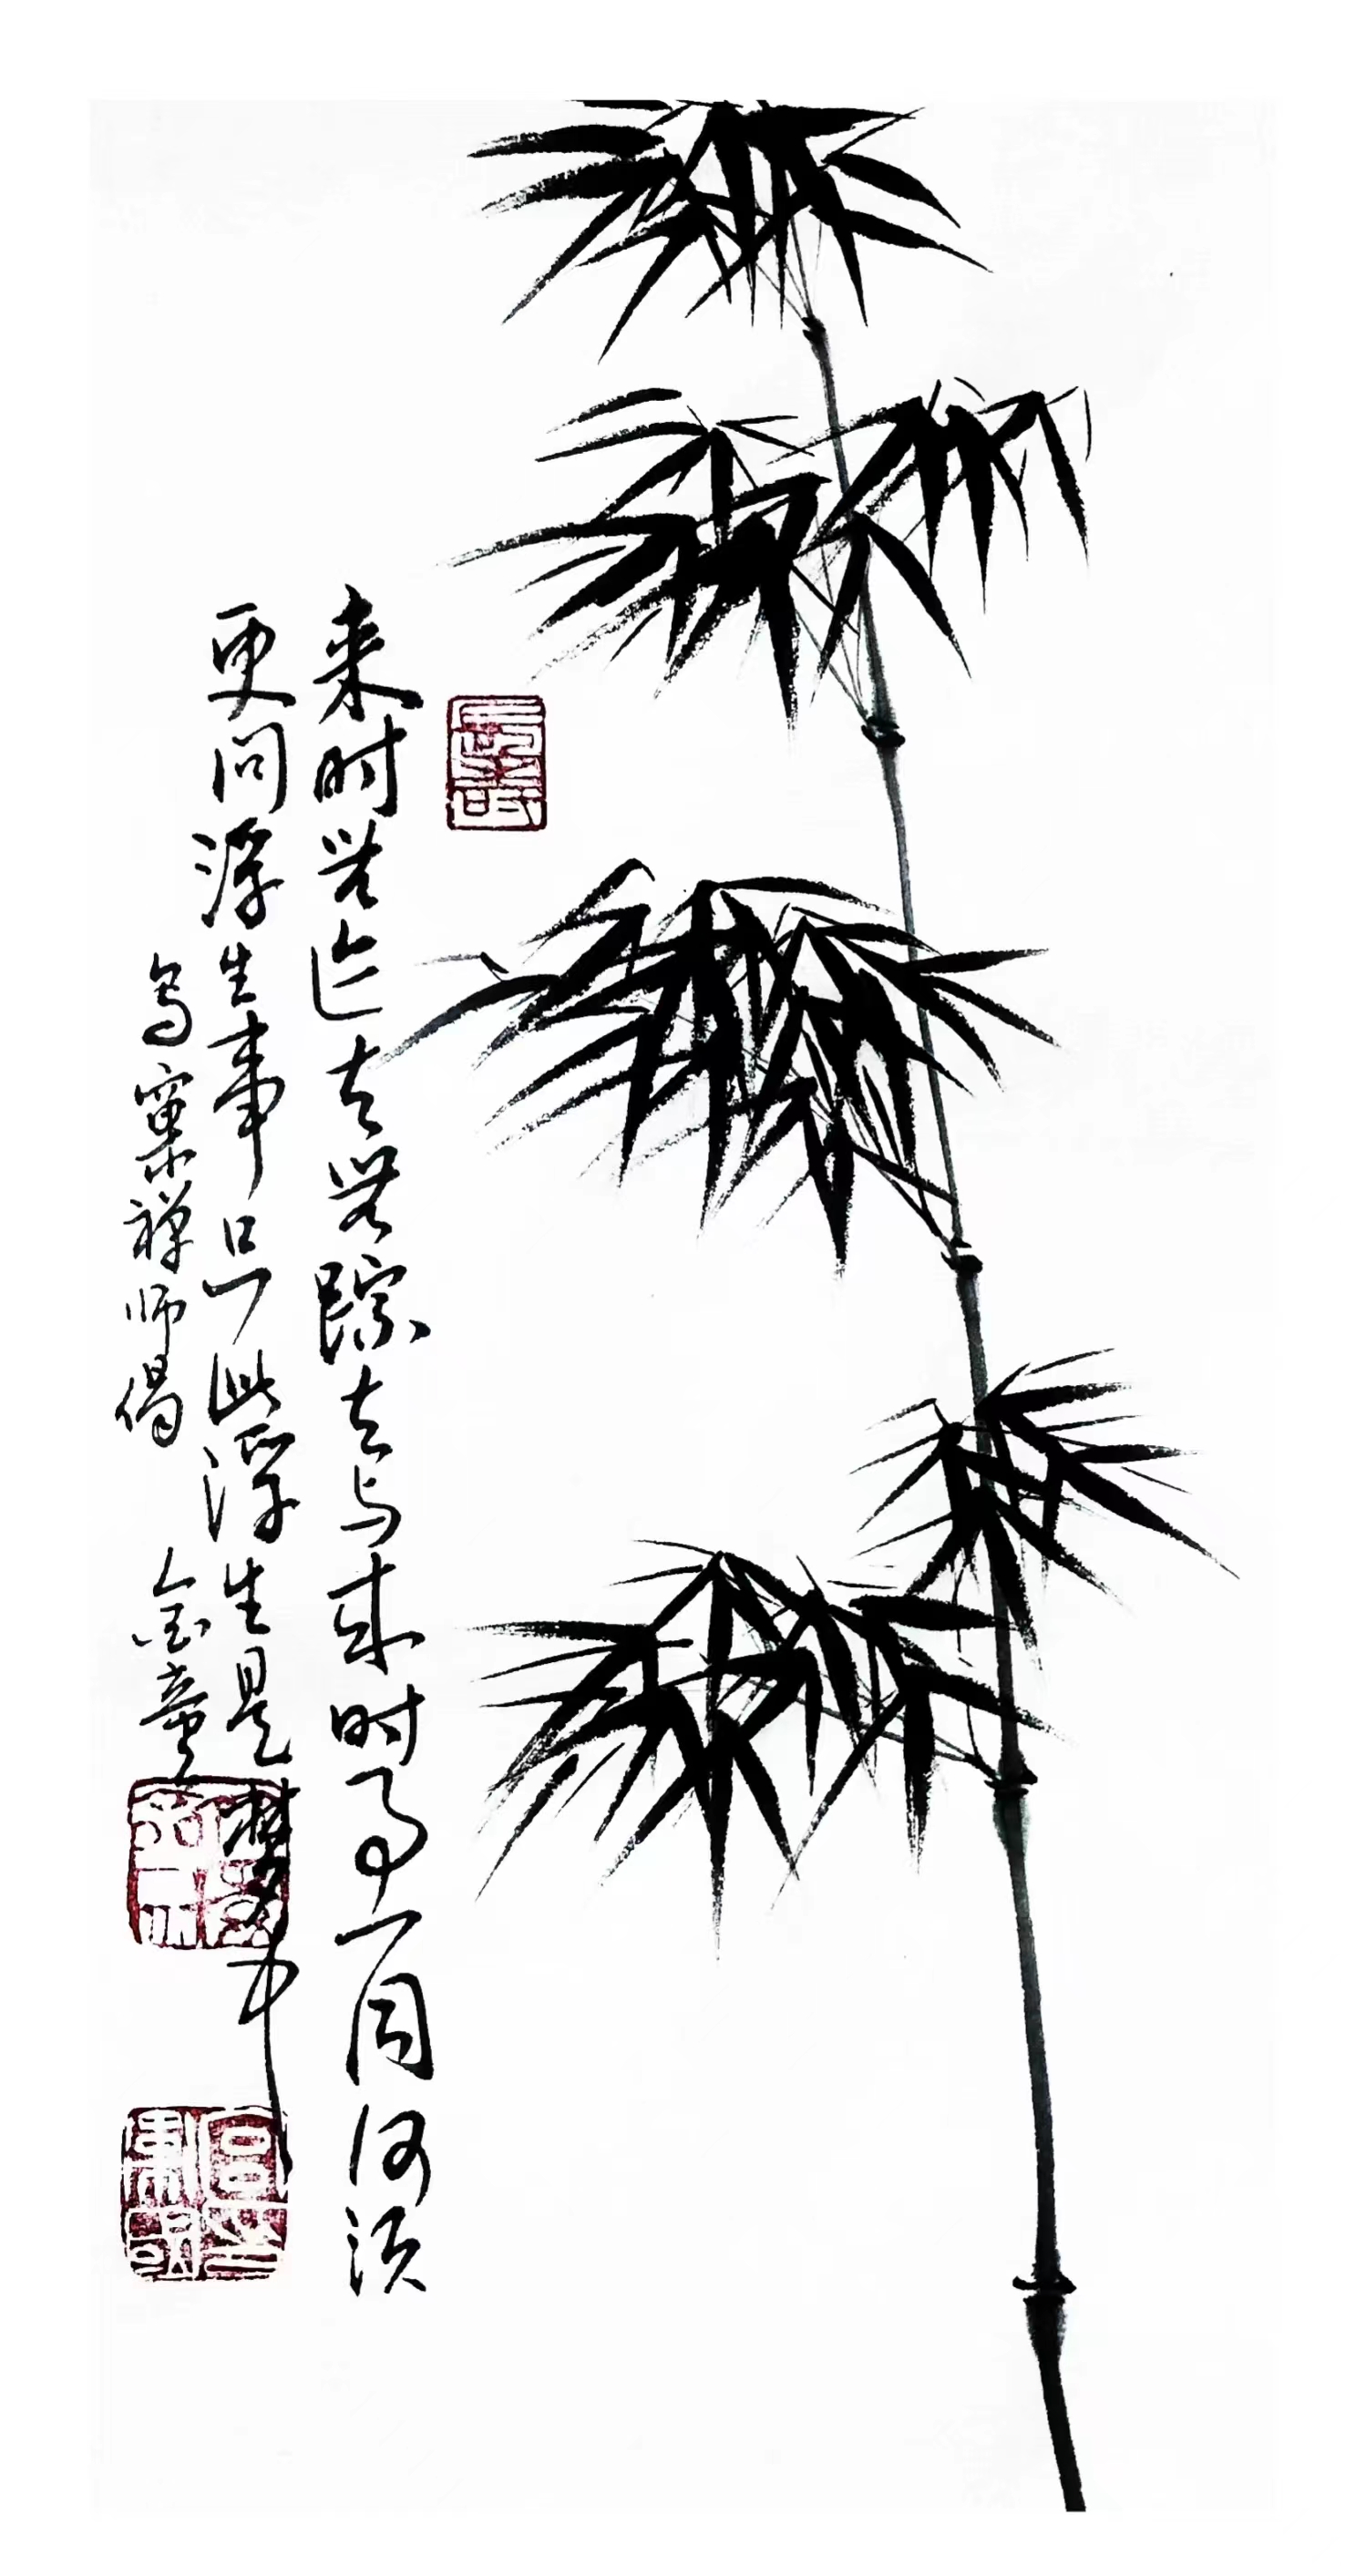 来时无迹去无踪去与来时事一同何须
更问浮生事只此浮生是梦中
鸟窠禅师偈